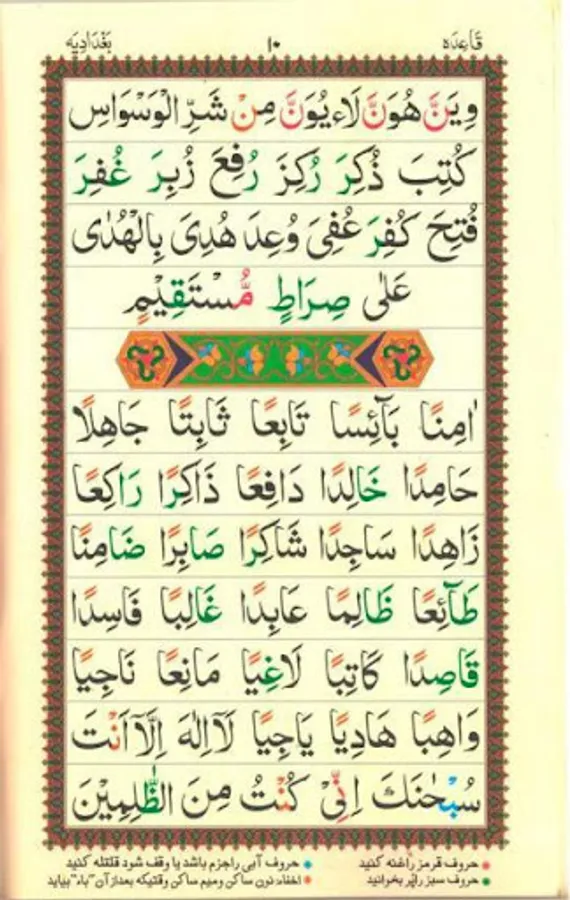 قاعده ۱۰ بغدادیه
وِیَنَّ هُوَنَّ لَاءِیُوَنَّ مِنْ شَرِّ الْوَسْوَاسِ
كُتِبَ ذُكِرَ رُكِزَ رُفِعَ زُبِرَ غُفِرَ
فُتِحَ كُفِرَ عُفِیَ وُعِدَ هُدِیَ بِالْهُدٰی
عَلٰی صِرَاطٍ مُّسْتَقِیْمٍ
اٰمِنًا بَآئِسًا تَابِعًا ثَابِتًا جَاهِلًا
حَامِدًا خَالِدًا دَافِعًا ذَاكِرًا رَاكِعًا
زَاهِدًا سَاجِدًا شَاكِرًا صَابِرًا ضَامِنًا
طَآئِعًا ظَالِمًا عَابِدًا غَالِبًا فَاسِدًا
قَاصِدًا كَاتِبًا لَاغِیًا مَانِعًا نَاجِیًا
وَاهِبًا هَادِیًا یَاجِیًا لَآاِلٰهَ اِلَّآ اَنْتَ
سُبْحٰنَكَ اِنِّیْ كُنْتُ مِنَ الظّٰلِمِیْنَ
حروف قرمز را غنه كنید
حروف آبی را جزم باشد یا وقف شود قلقله كنید
حروف سبز را پُر بخوانید
اخفاء: نون ساكن و میم ساكن وقتیكه بعد از آن "باء" بیاید